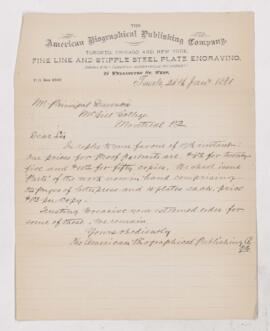 THE
American Biographical Publishing Company.
TORONTO, CHICAGO AND NEW YORK.
FINE LINE AND STIPPLE STEEL PLATE ENGRAVING.
Toronto, 1881
Mr Principal Dawson
McGill College
Montreal P.Q
Dear Sir
In reply to your favour of instant.
Our prices for Proof Portraits are for twenty
five and for fifty copies. We shall issue
"Parts" of the work now in hand comprising
pages of letterpress and plates each. price
per Copy.
Trusting to receive your esteemed order for
some of these. We remain
Yours obediently
The American Biographical Publishing Co